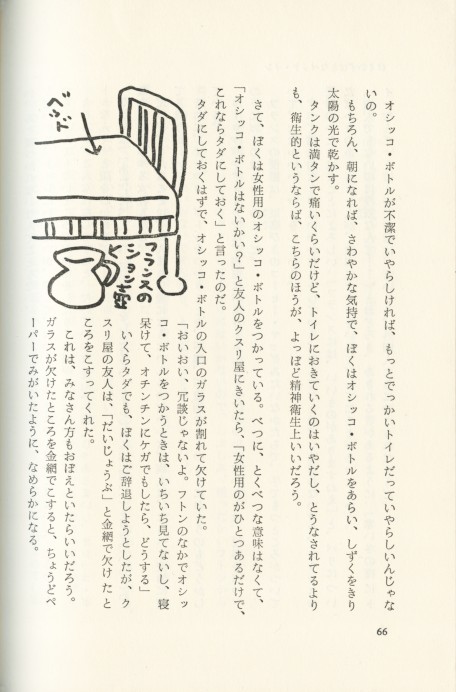 オシッコ・ボトルが不潔でいやらしければ、もっとでっかいトイレだっていやらしいんじゃな
いの。
もちろん、朝になれば、さわやかな気持で、ぼくはオシッコ・ボトルをあらい、しずくをきり
太陽の光で乾かす。
タンクは満タンで痛いくらいだけど、トイレにおきていくのはいやだし、とうなされてるより
も、衛生的というならば、こちらのほうが、よっぽど精神衛生上いいだろう。
さて、ぼくは女性用のオシッコ・ボトルをつかっている。べつに、とくべつな意味はなくて、
「オシッコ・ボトルはないかい？」と友人のクスリ屋にきいたら、「女性用のがひとつあるだけで、
これならタダにしておく」と言ったのだ。
タダにしておくはずで、オシッコ・ボトルの入口のガラスが割れて欠けていた。
「おいおい、冗談じゃないよ。フトンのなかでオシッ
コ・ボトルをつかうときは、いちいち見てないし、寝
呆けて、オチンチンにケガでもしたら、どうする」
いくらタダでも、ぼくはご辞退しようとしたが、ク
スリ屋の友人は、「だいじょうぶ」と金網で欠けたと
ころをこすってくれた。
これは、みなさん方もおぼえといたらいいだろう。
ガラスが欠けたところを金網でこすると、ちょうどペ
ーパーでみがいたように、なめらかになる。
ベッド
フランスの
ション壺
66